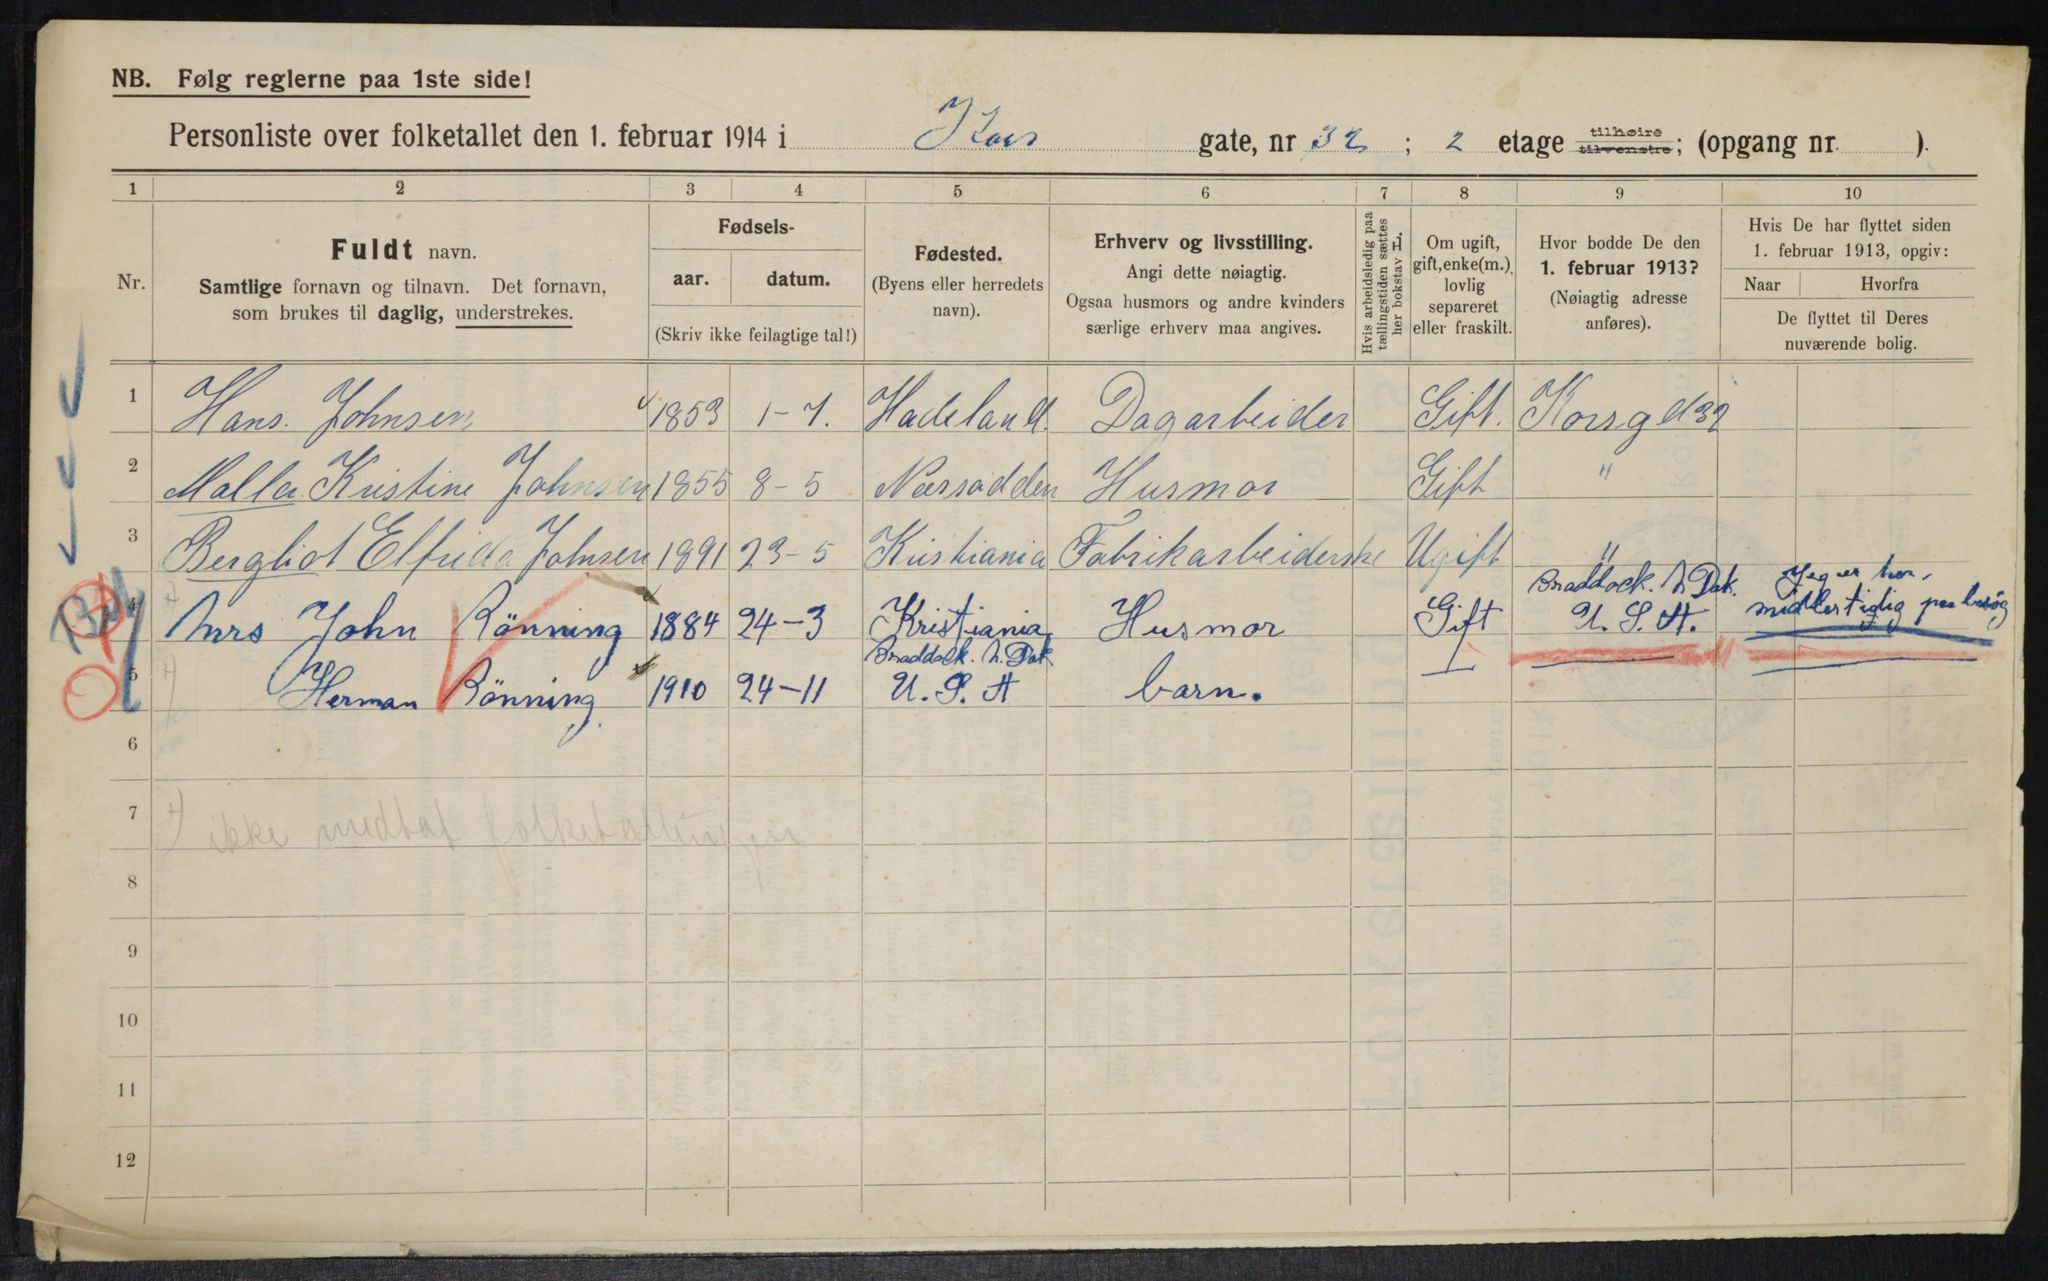 NB. Følg reglerne paa 1ste side!
Personliste over folketallet den 1. februar 1914 i Kors gate, nr 32 ; 2 etage tilhøire tilvenstre; (opgang nr. ).
1 2 3 4 5 6 7 8 9 10
Nr.
Fuldt navn.
Samtlige fornavn og tilnavn. Det fornavn,
som brukes til daglig, understrekes.
Fødsels-
aar. datum.
(Skriv ikke feilagtige tal!)
Fødested.
(Byens eller herredets
navn).
Erhverv og livsstilling.
Angi dette nøiagtig.
Ogsaa husmors og andre kvinders
særlige erhverv maa angives.
Hvis arbeidsledig paa
tællingstiden sættes
her bokstav L.
Om ugift,
gift, enke(m.),
lovlig
separeret
eller fraskilt.
Hvor bodde De den
1. februar 1913?
(Nøiagtig adresse
anføres).
Hvis De har flyttet siden
1. februar 1913, opgiv:
Naar Hvorfra
De flyttet til Deres
nuværende bolig.
1 Hans. Johnsen 1853 1-7. Hadeland. Dagarbeider Gift. Korsgd 32
2 Malla Kristine Johnsen 1855 8-5 Næsodden Husmor Gift "
3 Bergliot Elfrida Johnsen 1891 23-5 Kristiania Fabrikarbeiderske Ugift "
Braddock. N. Dak. Jeg er her,
4 Mrs John Rönning 1884 24-3 Kristiania Husmor Gift U. S. A. midlertidig paa besög
Braddock. N. Dak
5 Herman Rönning 1910 24-11 U. S. A barn.
6
7 +) ikke medtat folketællingen
8
9
10
11
12